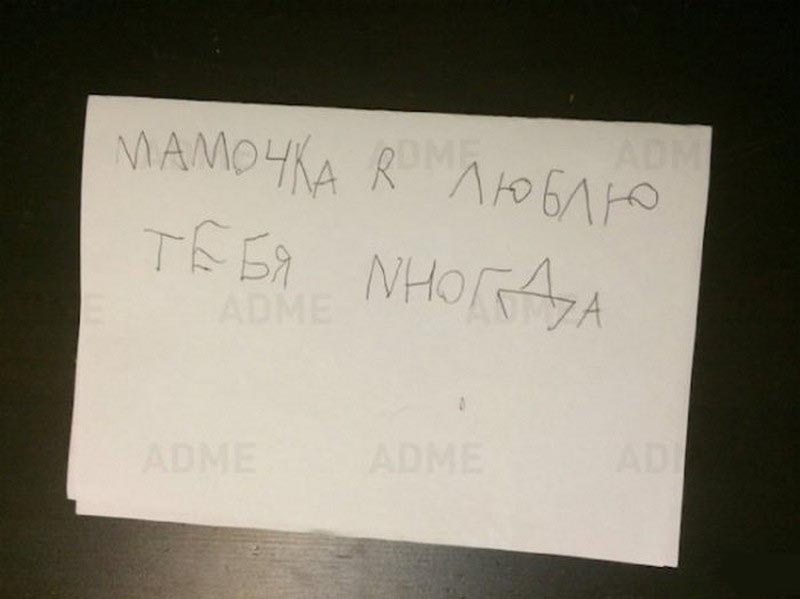 МАМОЧКА R ЛЮБЛЮ
ТЕБЯ NНОГДА
ADME
ADME
ADME
ADME
ADME
ADME